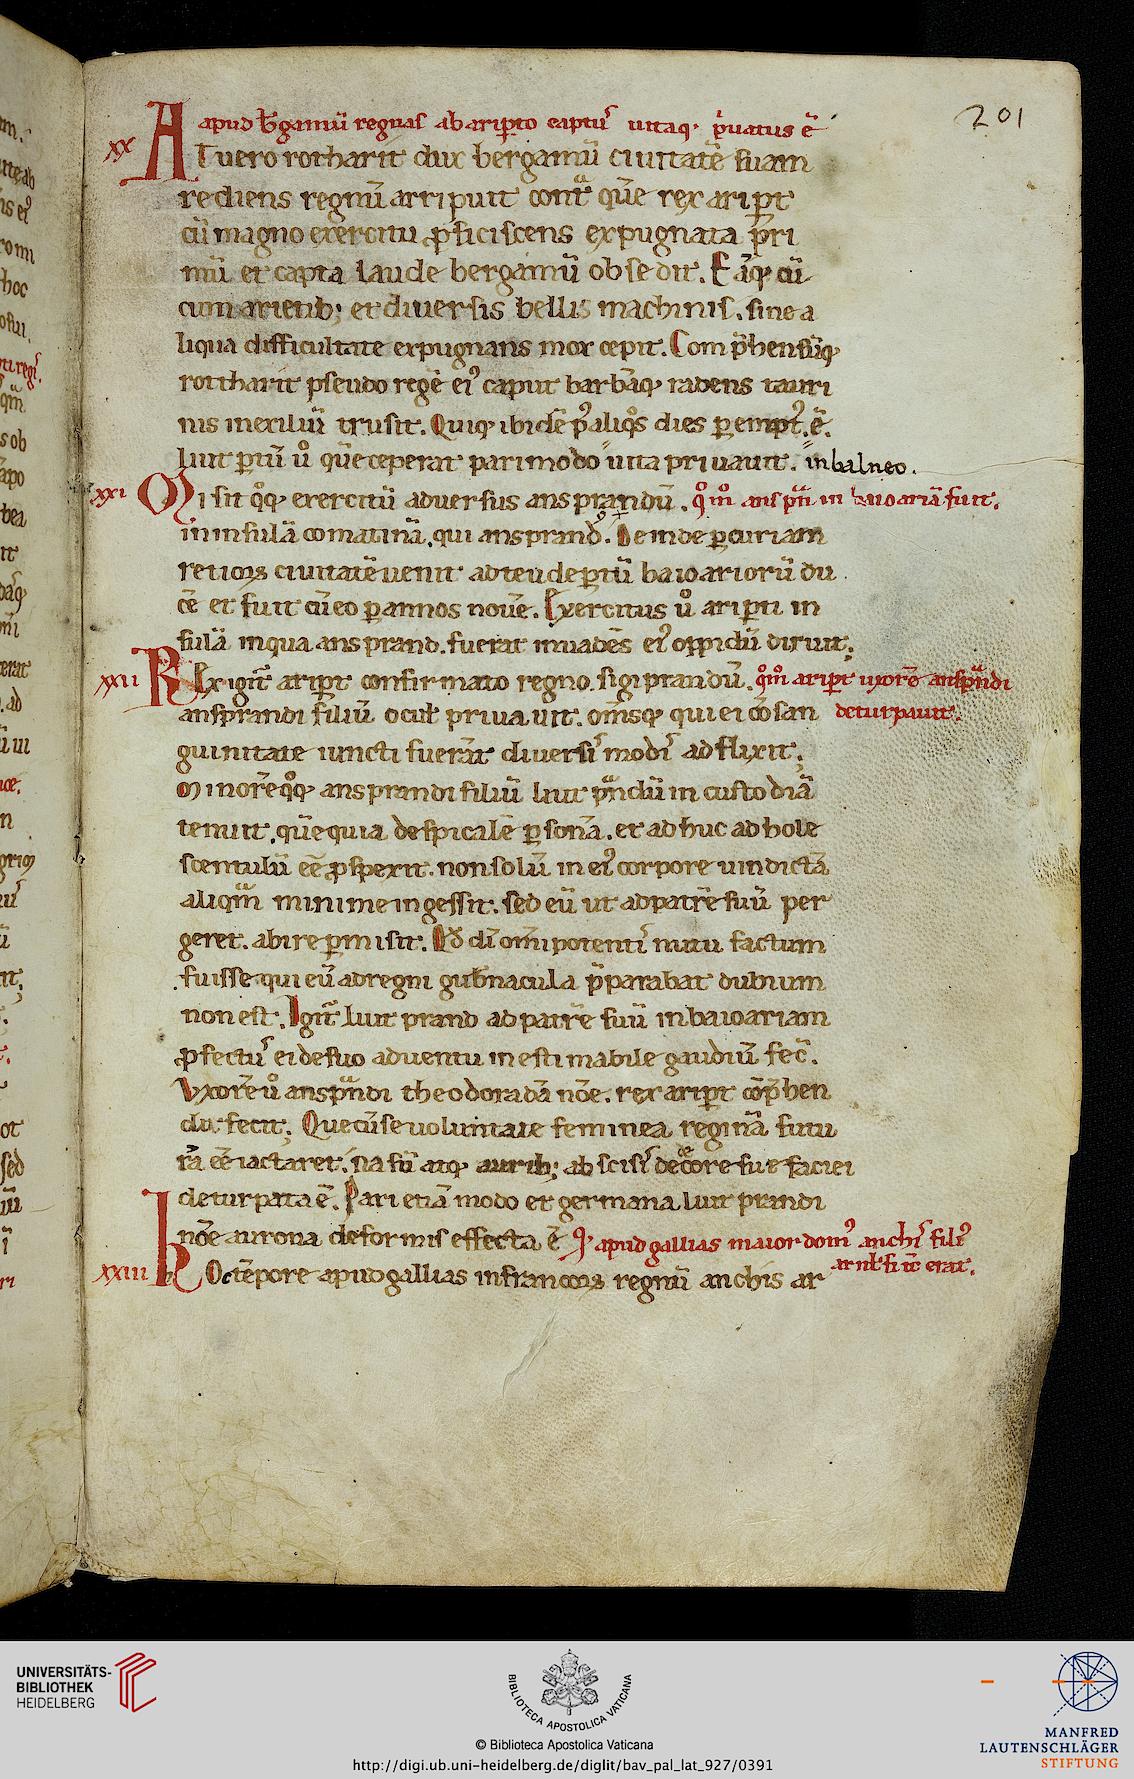 201
apud b̄gamū regnas ab aripto captꝰ uitaq; p̱uatus ē
xx
AT uero rotharit dux bergamū ciuitatē suam
rediens regnū arripuit cont̃ quē rex aript
cū magno exercitu ꝓficiscens expugnata p̃ri
mū et capta laude bergamū obsedit. Eāq; cū
cum arietib; et diuersis bellis machinis. sine a
liqua difficultate expugnans mox cepit. Comp̃hensūq;
rottharit pseudo regē eiꝰ caput barbāq; radens tauri
nis inexiliū trusit. Quiq; ibidē pꝰaliq̊s dies ꝑemptꝰ.ē.
Liut ꝑtū ů quēceperat pari modo uita priuauit. in balneo.
xxi
Misit q̊q; exercitū aduersus ansprandū. q̊m̊ anspñ in baioariā fuit.
in insulā comatinā, qui ansprandꝰ. Deinde ꝑcuriam
retioꝝ ciuitatē uenit ad teudeꝑtū baioariorū du
cē et fuit cū eo ꝑ annos nouē. Exercitus ů aripti in
sulā inqua ansprand. fuerat inuadēs eiꝰ oppidū diruit;
xxii
REx igit̃ aript confirmato regno. sigiprandū. q̊m̊ aript uxorē anspñdi
ansprandi filiū ocut̄ priuauit. om̄sq; qui ei cōsan deturpauit.
guinitate iuncti fuerāt diuersiꝰ modiꝰ adflixit;
Minorē q̊q; ansprandi filiū liut pñdū in custodiā
tenuit, quē quia despicalē ꝑsonā. et adhuc adhole
scentulū eē ꝓspexit. non solū in eiꝰ corpore uindictā
aliqm̃ minime ingessit. sed eū ut ad patrē suū per
geret. abire ꝑmisit. Qd̄ dī om̄ipotentiꝰ nutu factum
fuisse qui eū ad regni gub̄nacula p̃parabat dubium
non est. Igit̃ Liut prand ad patrē suū in baioariam
ꝓfectuꝰ ei de suo aduentu inestimabile gaudiū fec̄.
Vxorē ů anspñdi theodoradā nōe. rex aript cōp̃hen
di fecit; Que cū se uoluntate feminea reginā futu
rā eē iactaret. na sū atq; aurib; abscisiꝰ decore sue faciei
deturpata ē. Pari etiā modo et germana liut prandi
nōe aurona deformis effecta ē Qꝰ apud gallias maior domꝰ anchiꝰ filiꝰ
arnulfi tc̄ erat.
xxiii
hOc tēpore apud gallias in francoꝝ regnū anchis ar
UNIVERSITÄTS-
BIBLIOTHEK
HEIDELBERG
BIBLIOTECA APOSTOLICA VATICANA
© Biblioteca Apostolica Vaticana
http://digi.ub.uni-heidelberg.de/diglit/bav_pal_lat_927/0391
MANFRED
LAUTENSCHLÄGER
STIFTUNG